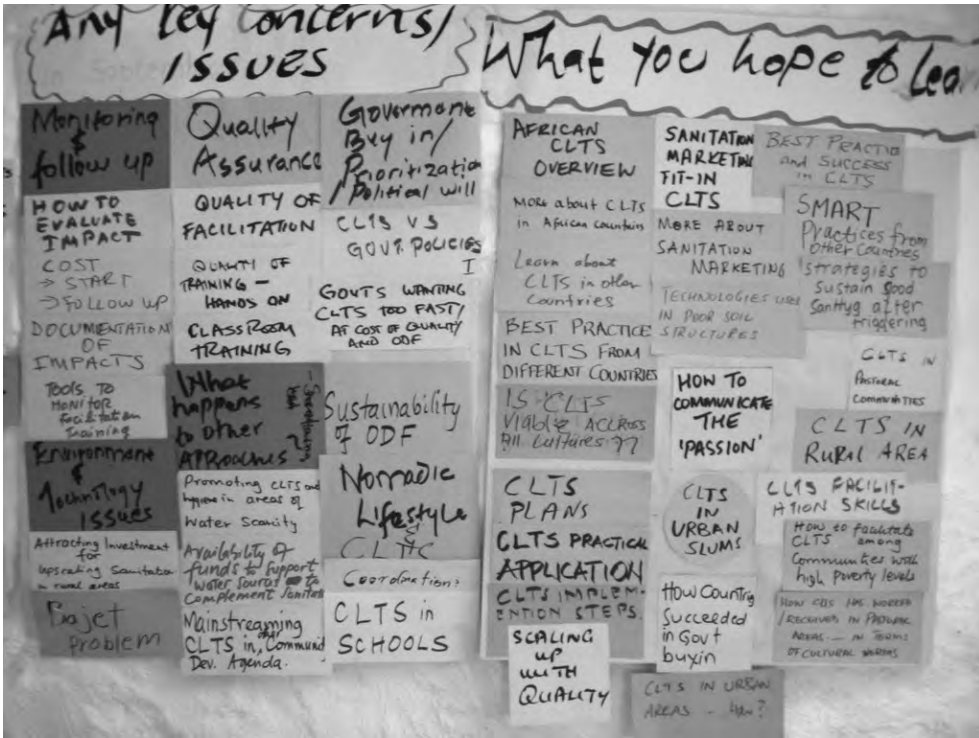 Any key concerns/
ISSUES
Monitoring
&
follow up
HOW TO
EVALUATE
IMPACT
COST
→ START
→ FOLLOW UP
DOCUMENTATION
OF
IMPACTS
TOOLS TO
MONITOR
Facilitation
Training
Environment
&
Technology
ISSUES
Attracting Investment
for
upscaling Sanitation
in rural areas
Bajet
Problem
Quality
Assurance
QUALITY OF
FACILITATION
QUALITY OF
TRAINING —
HANDS ON
CLASSROOM
TRAINING
What
happens
to other
APPROACHES
Promoting CLTS and
hygiene in areas of
Water Scarcity
Availability of
funds to support
water sources to
complement sanitation
Mainstreaming
CLTS in other Commun
Dev. Agenda.
Goverment
Buy in/
Prioritization/
Political will
CLTS VS
GOVT. POLICIES
I
GOVTS WANTING
CLTS TOO FAST/
AT COST OF QUALITY
AND ODF
Sustainability
of ODF
Nomadic
Lifestyle
&
CLTS
Coordination?
CLTS in
SCHOOLS
What you hope to lea
AFRICAN
CLTS
OVERVIEW
More about CLTS
in African countries
Learn about
CLTS in other
Countries
BEST PRACTICE
IN CLTS FROM
DIFFERENT COUNTRIES
IS CLTS
Viable ACCROSS
All cultures ??
CLTS
PLANS
CLTS PRACTICAL
APPLICATION
CLTS IMPLEM-
ENTION STEPS.
SCALING
UP
WITH
QUALITY
SANITATION
MARKETING
FIT-IN
CLTS
MORE ABOUT
SANITATION
MARKETING
TECHNOLOGIES USED
IN POOR SOIL
STRUCTURES
HOW TO
COMMUNICATE
THE
'PASSION'
CLTS
IN
URBAN
SLUMS
How Country
Succeeded
in Govt
buyin
CLTS IN URBAN
AREAS - How?
BEST PRACTIC
and SUCCESS
in CLTS
SMART
Practices from
other Countries
Strategies to
Sustain good
after
triggering
CLTS IN
PASTORAL
COMMUNITIES
CLTS IN
RURAL AREA
CLTS FACILIT-
ATION SKILLS
How to facilitate
CLTS among
Communities with
high poverty levels
HOW CLTS HAS WORKED
/RECEIVED IN PASTORAL
AREAS — IN TERMS
OF CULTURAL NORMS